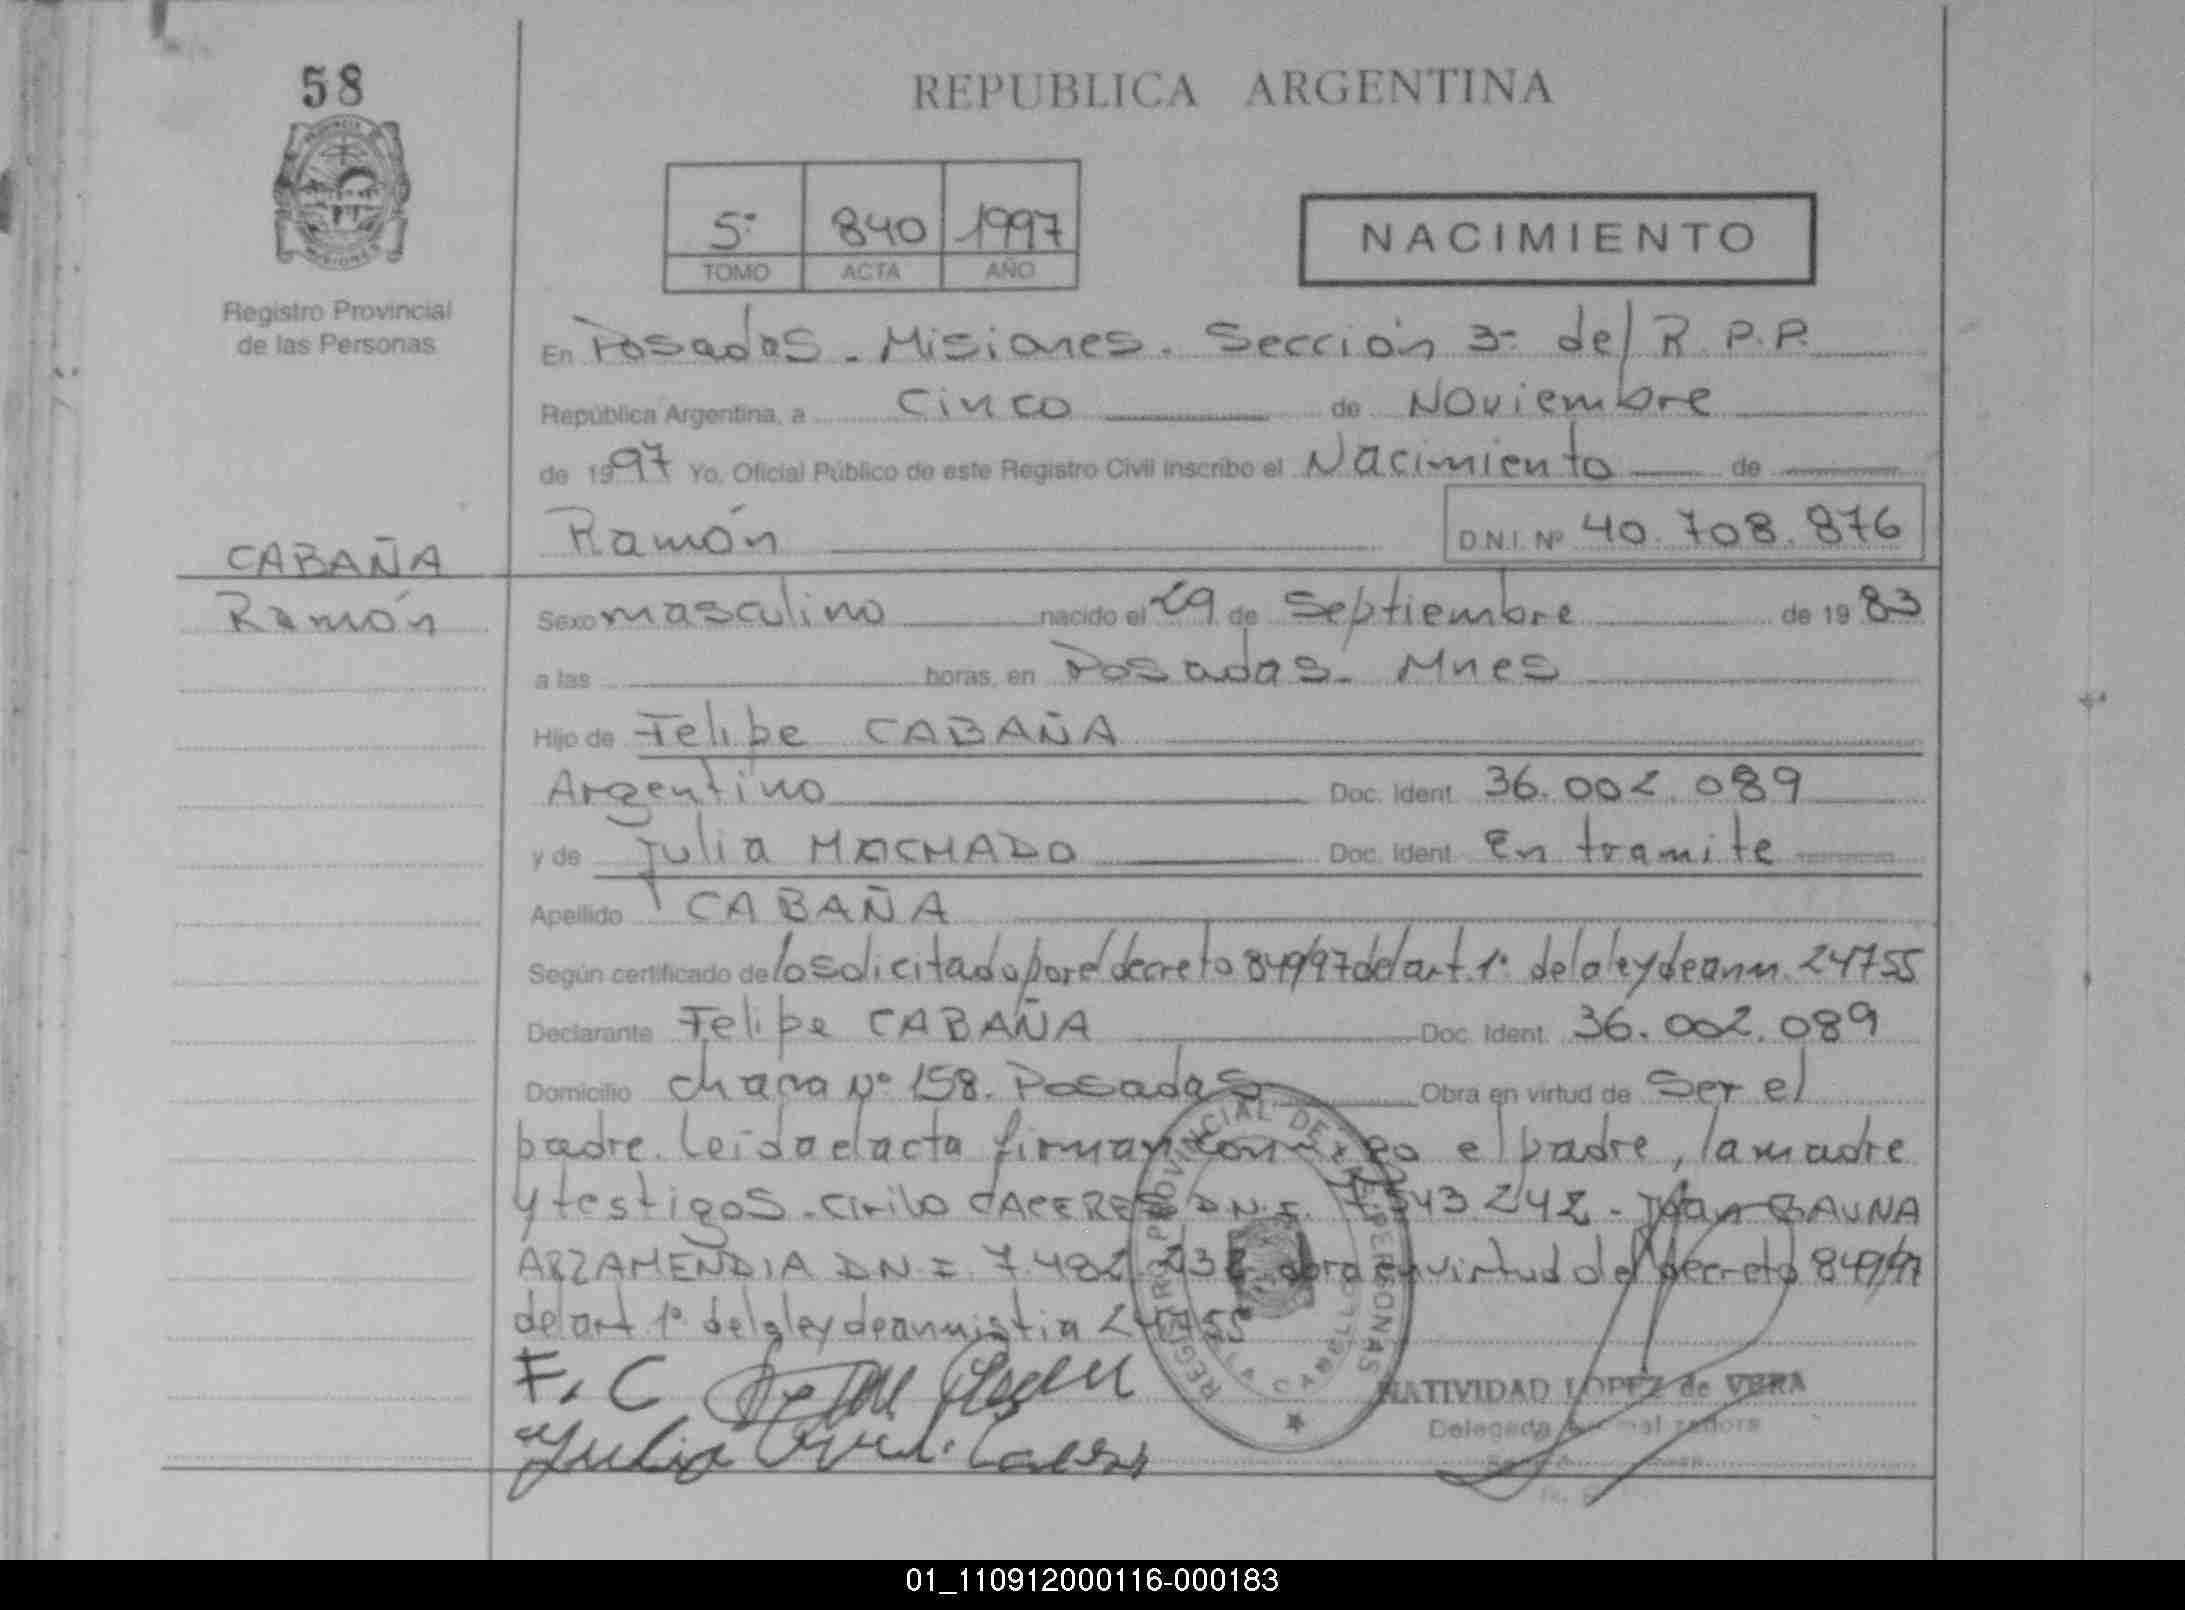 58
REPUBLICA ARGENTINA
5º 840 1997
TOMO ACTA AÑO
NACIMIENTO
Registro Provincial
de las Personas
En Posadas - Misiones. Sección 3ª del R.P.P.
República Argentina, a Cinco de Noviembre
de 1997 Yo, Oficial Público de este Registro Civil inscribo el Nacimiento de
Ramón D.N.I. Nº 40.708.876
CABAÑA
Ramón
Sexo masculino nacido el 29 de Septiembre de 1983
a las horas, en Posadas - Mnes
Hijo de Felipe CABAÑA
Argentino Doc. Ident. 36.002.089
y de Julia MACHADO Doc. Ident. En tramite
Apellido CABAÑA
Según certificado de lo solicitado por el decreto 849/97 del art. 1º de la ley de amn. 24755
Declarante Felipe CABAÑA Doc. Ident. 36.002.089
Domicilio chacra Nº 158. Posadas Obra en virtud de Ser el
padre. Leida el acta firman conmigo el padre, la madre
y testigos - Cirilo CACERES D.N.I. 7.543.242 - BAUNA
ARZAMENDIA DNI. 7.482.23 obra en virtud del decreto 849/97
del art 1º de la ley de amnistia 24755
F. C
Julia
REGISTRO PROVINCIAL DE LAS PERSONAS
NATIVIDAD LOPEZ de VERA
Delegada
01_110912000116-000183